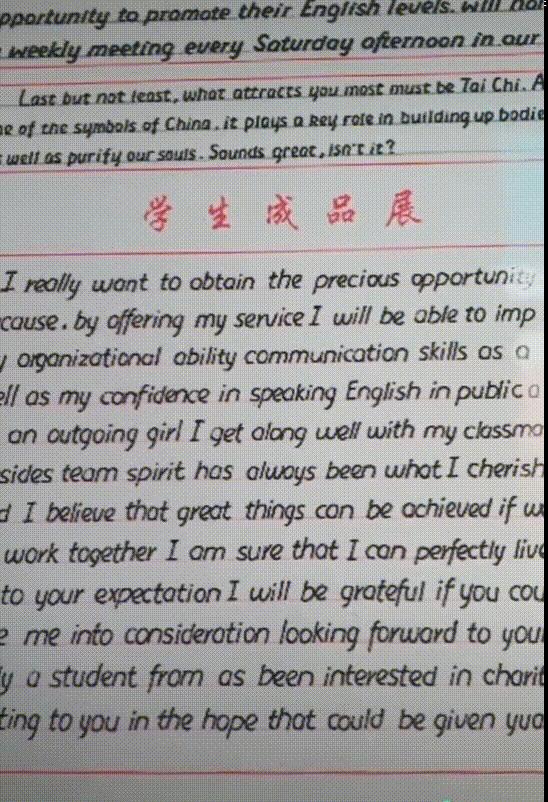 pportunity to promote their English levels. will
weekly meeting every Saturday afternoon in our
Last but not least, what attracts you most must be Tai Chi. A
ne of the symbols of China. it plays a key role in building up bodie
well as purify our souls. Sounds great, isn't it?
学生成品展
I really want to obtain the precious opportunity
cause. by offering my service I will be able to imp
y organizational ability communication skills as a
ell as my confidence in speaking English in public a
an outgoing girl I get along well with my classma
sides team spirit has always been what I cherish
d I believe that great things can be achieved if w
work together I am sure that I can perfectly live
to your expectation I will be grateful if you cou
e me into consideration looking forward to your
ly a student from as been interested in charit
ting to you in the hope that could be given you